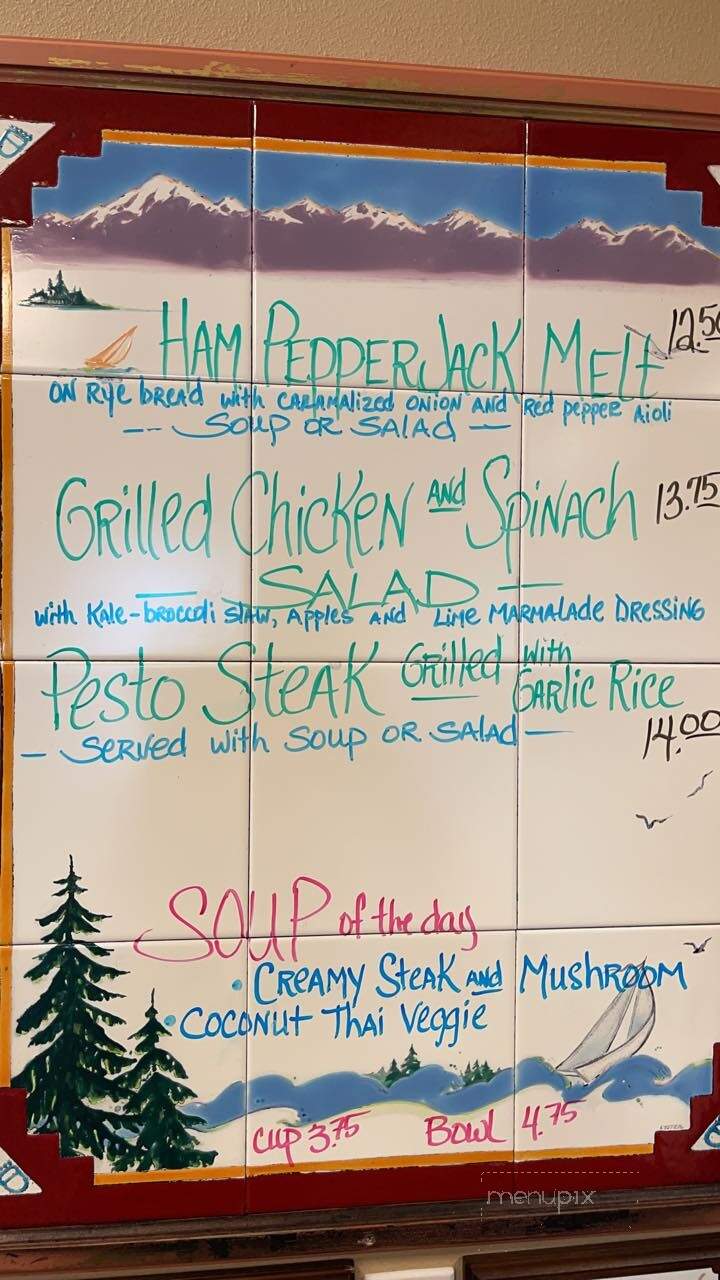 HAM PEPPERJACK MELt 12.50
ON Rye bREAD with CARAMALIZED ONION AND Red pepper Aioli
--- Soup OR SALAD —
GRilled ChicKEN AND SpiNAch 13.75
— SALAD —
with Kale-broccoli Slaw, Apples AND Lime MARMALADE DRESSING
Pesto SteAK GRilled with GARLic Rice
14.00
— SERVED with Soup OR SALAD —
SOUP of the day
• CREAMY SteAK AND MushROOM
• COCONUT THAI Veggie
cup 3.75 Bowl 4.75
menupix